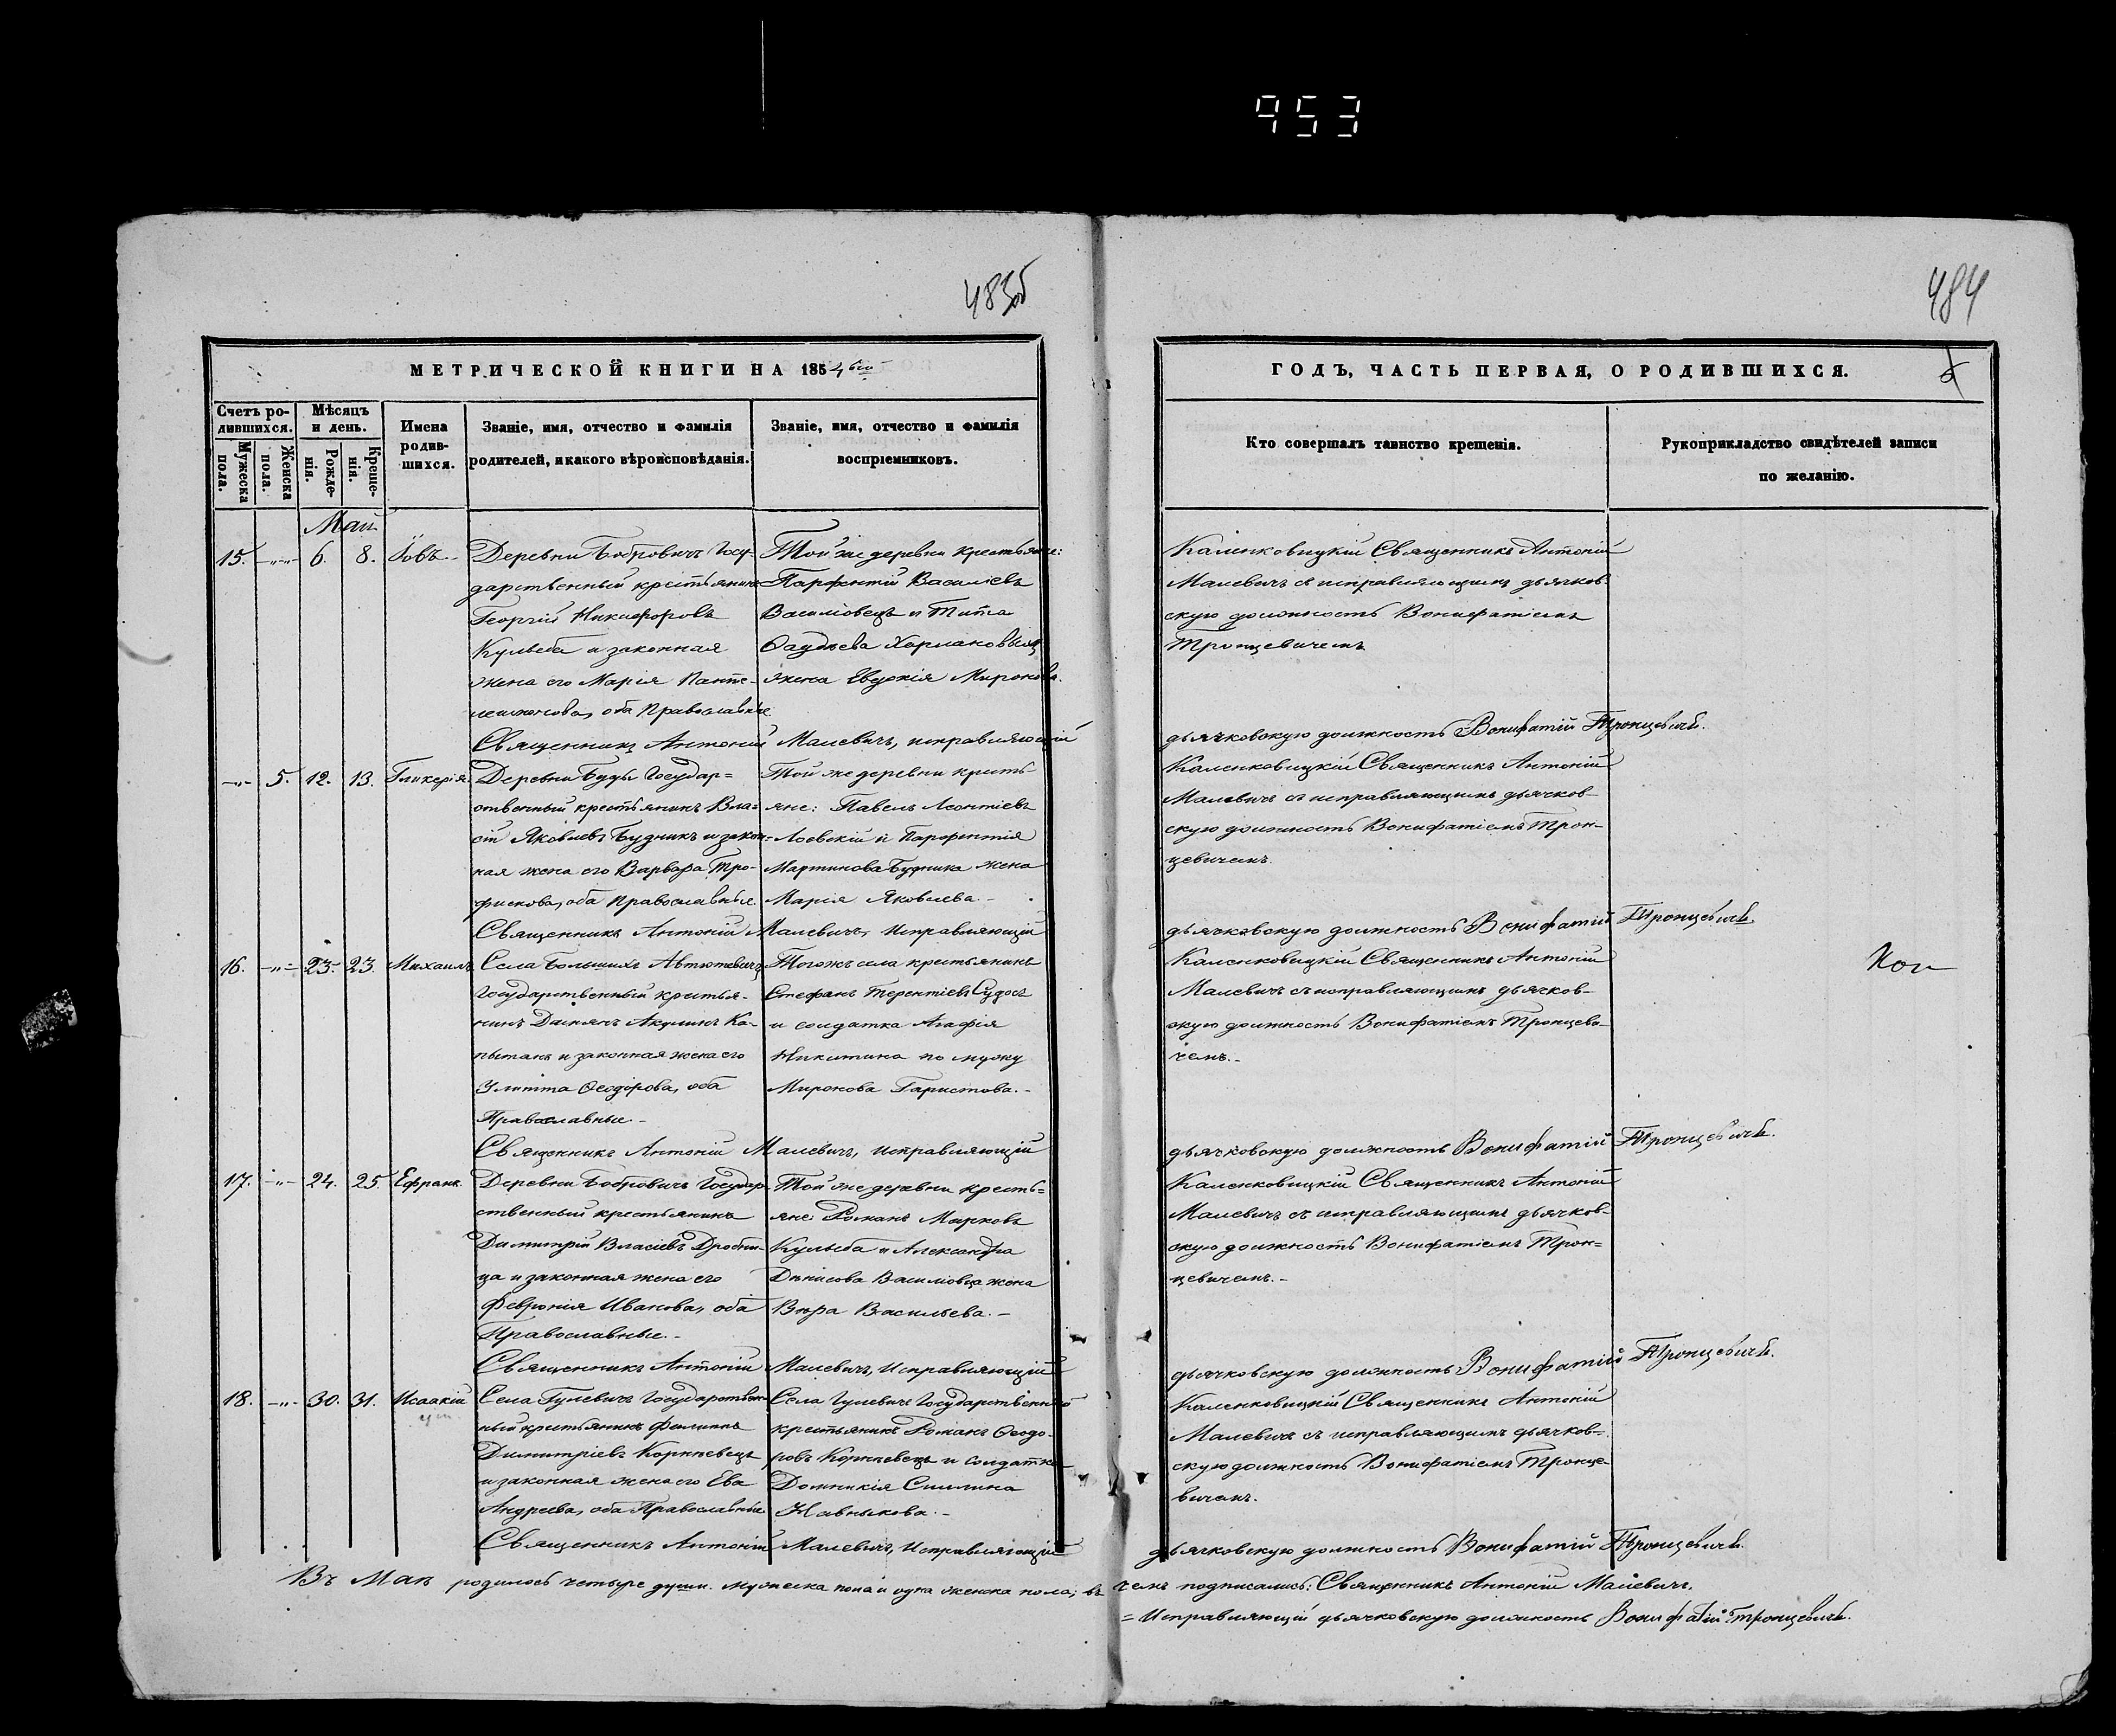 953
483об
484
МЕТРИЧЕСКОЙ КНИГИ НА 1854
ГОДЪ, ЧАСТЬ ПЕРВАЯ, О РОДИВШИХСЯ.
Счетъ родившихся.
Мужеска пола.
Женска пола.
Мѣсяцъ и день.
Рожденія.
Крещенія.
Имена родившихся.
Званіе, имя, отчество и фамилія
родителей, и какого вѣроисповѣданія.
Званіе, имя, отчество и фамилія
воспріемниковъ.
Кто совершалъ таинство крещенія.
Рукоприкладство свидѣтелей записи
по желанію.
Май
15. -„- 6. 8. Іовъ
Деревни Бобровичъ Госу-
дарственный крестьянинъ
Георгій Никифоровъ
Кульба и законная
жена его Марія Панте-
леимонова, оба Православные
Той же деревни крестьяне:
Парфентій Василіевъ
Василовецъ и Тита
Фаддѣева
жена Евдокія Миронова.
Каленковицкій Священникъ Антоній
Малевичъ съ исправляющимъ дьячков-
скую должность Вонифатіемъ
Тронцевичемъ
Священникъ Антоній Малевичъ, исправляющій
дьячковскую должность Вонифатій Тронцевичъ.
-„- 5. 12. 13. Гликерія.
Деревни Буды Государ=
ственный крестьянинъ Вла-
сій Яковлевъ Будникъ и закон-
ная жена его Варвара Тро-
фимова, оба Православные
Той же деревни кресть-
яне: Павелъ Леонтіевъ
Лоевскій и Парфентія
Мартинова Будника жена
Марія Яковлева.-
Каленковицкій Священникъ Антоній
Малевичъ съ исправляющимъ дьячков-
скую должность Вонифатіемъ Трон-
цевичемъ.
Священникъ Антоній Малевичъ, Исправляющій
дьячковскую должность Вонифатій Тронцевичъ.
16. -„- 23. 23. Михаилъ
Села Большихъ Автютевичъ
Государственный крестья-
нинъ Даміанъ Акулинъ Ка-
пытанъ и законная жена его
Улитта Ѳеодорова, оба
Православные.-
Тогожъ села крестьянинъ
Стефанъ Терентіевъ Судосъ
и солдатка Агафія
Никитина по мужу
Миронова Гаристова.-
Каленковицкій Священникъ Антоній
Малевичъ съ исправляющимъ дьячков-
скую должность Вонифатіемъ Тронцеви-
чемъ.-
Священникъ Антоній Малевичъ, исправляющій
дьячковскую должность Вонифатій Тронцевичъ.
17. -„- 24. 25. Ефранъ.
Деревни Бобровичъ Государ-
ственный крестьянинъ
Димитрій Власіевъ Дробни-
ца и законная жена его
Февронія Иванова, оба
Православные.-
Той же деревни кресть=
яне: Романъ Марковъ
Кульба и Александра
Денисова Василовца жена
Вѣра Васильева.-
Каленковицкій Священникъ Антоній
Малевичъ съ исправляющимъ дьячков-
скую должность Вонифатіемъ Трон=
цевичемъ.-
Священникъ Антоній Малевичъ, Исправляющій
дьячковскую должность Вонифатій Тронцевичъ.
18. -„- 30. 31. Исаакій
Села Гулевичъ Государствен-
ный крестьянинъ Филиппъ
Димитріевъ Корнѣевецъ
и законная жена его Ева
Андреева, оба Православные
Села Гулевичъ Государственный
крестьянинъ Романъ Ѳеодо-
ровъ Корнѣевецъ и солдатка
Домникія Силина
Каленковицкій Священникъ Антоній
Малевичъ съ исправляющимъ дьячков=
скую должность Вонифатіемъ Тронце-
вичемъ.
Священникъ Антоній Малевичъ, Исправляющій
дьячковскую должность Вонифатій Тронцевичъ.
Въ Маѣ родилось четыре души мужеска пола и одна женска пола; въ чемъ подписались: Священникъ Антоній Малевичъ.
= Исправляющій дьячковскую должность Вонифатій Тронцевичъ.